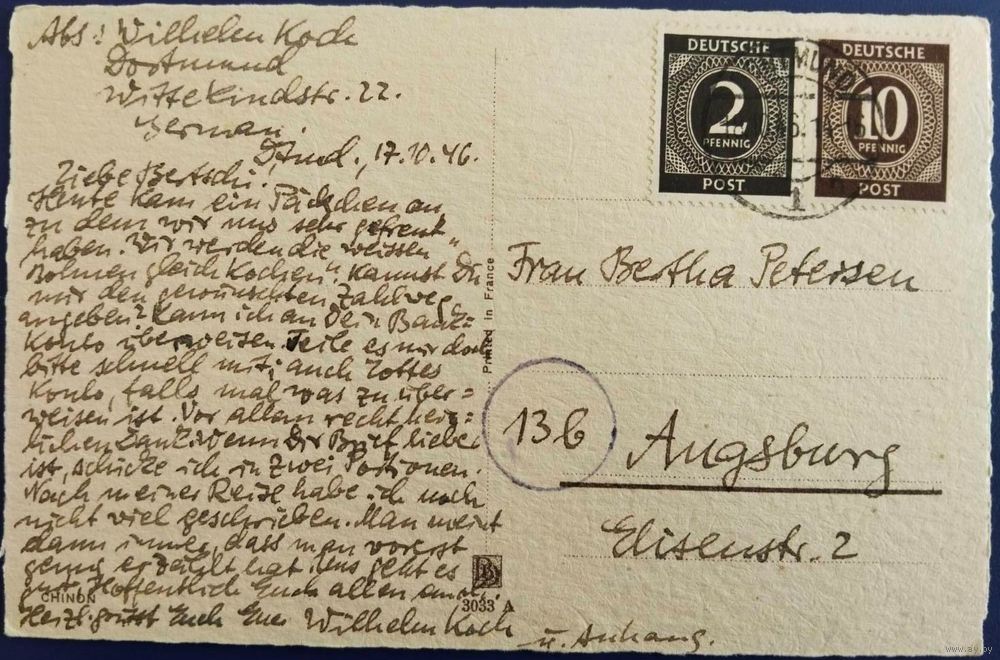 Abs: Wilhelm Koch
Dortmund
Wittekindstr. 22.
German.
Dtmd, 17.10.46.
Liebe Bertschi!
Heute kam ein Päckchen an
zu dem wir uns sehr gefreut
haben. Wir werden die weissen
Bohnen gleich kochen". Kannst Du
mir den gewünschten Zahlweg
angeben? Kann ich an Dein Bank=
Konto überweisen. Teile es mir doch
bitte schnell mit; auch Lottes
Konto, falls mal was zu über=
weisen ist. Vor allem recht herz=
lichen Dank! Wenn Dir Brief lieber
ist, schicke ich in zwei Portionen.
Nach meiner Reise habe ich noch
nicht viel geschrieben. Man meint
dann immer, dass man vorerst
genug erzählt hat. Uns geht es
gut. Hoffentlich Euch allen auch.
Herzl. grüsst Euch Euer Wilhelm Koch
u. Anhang.
CHINON
3033 A
Printed in France
DEUTSCHE
2
PFENNIG
POST
DEUTSCHE
10
PFENNIG
POST
Frau Bertha Petersen
13b
Augsburg
Elisenstr. 2
www.ay.by